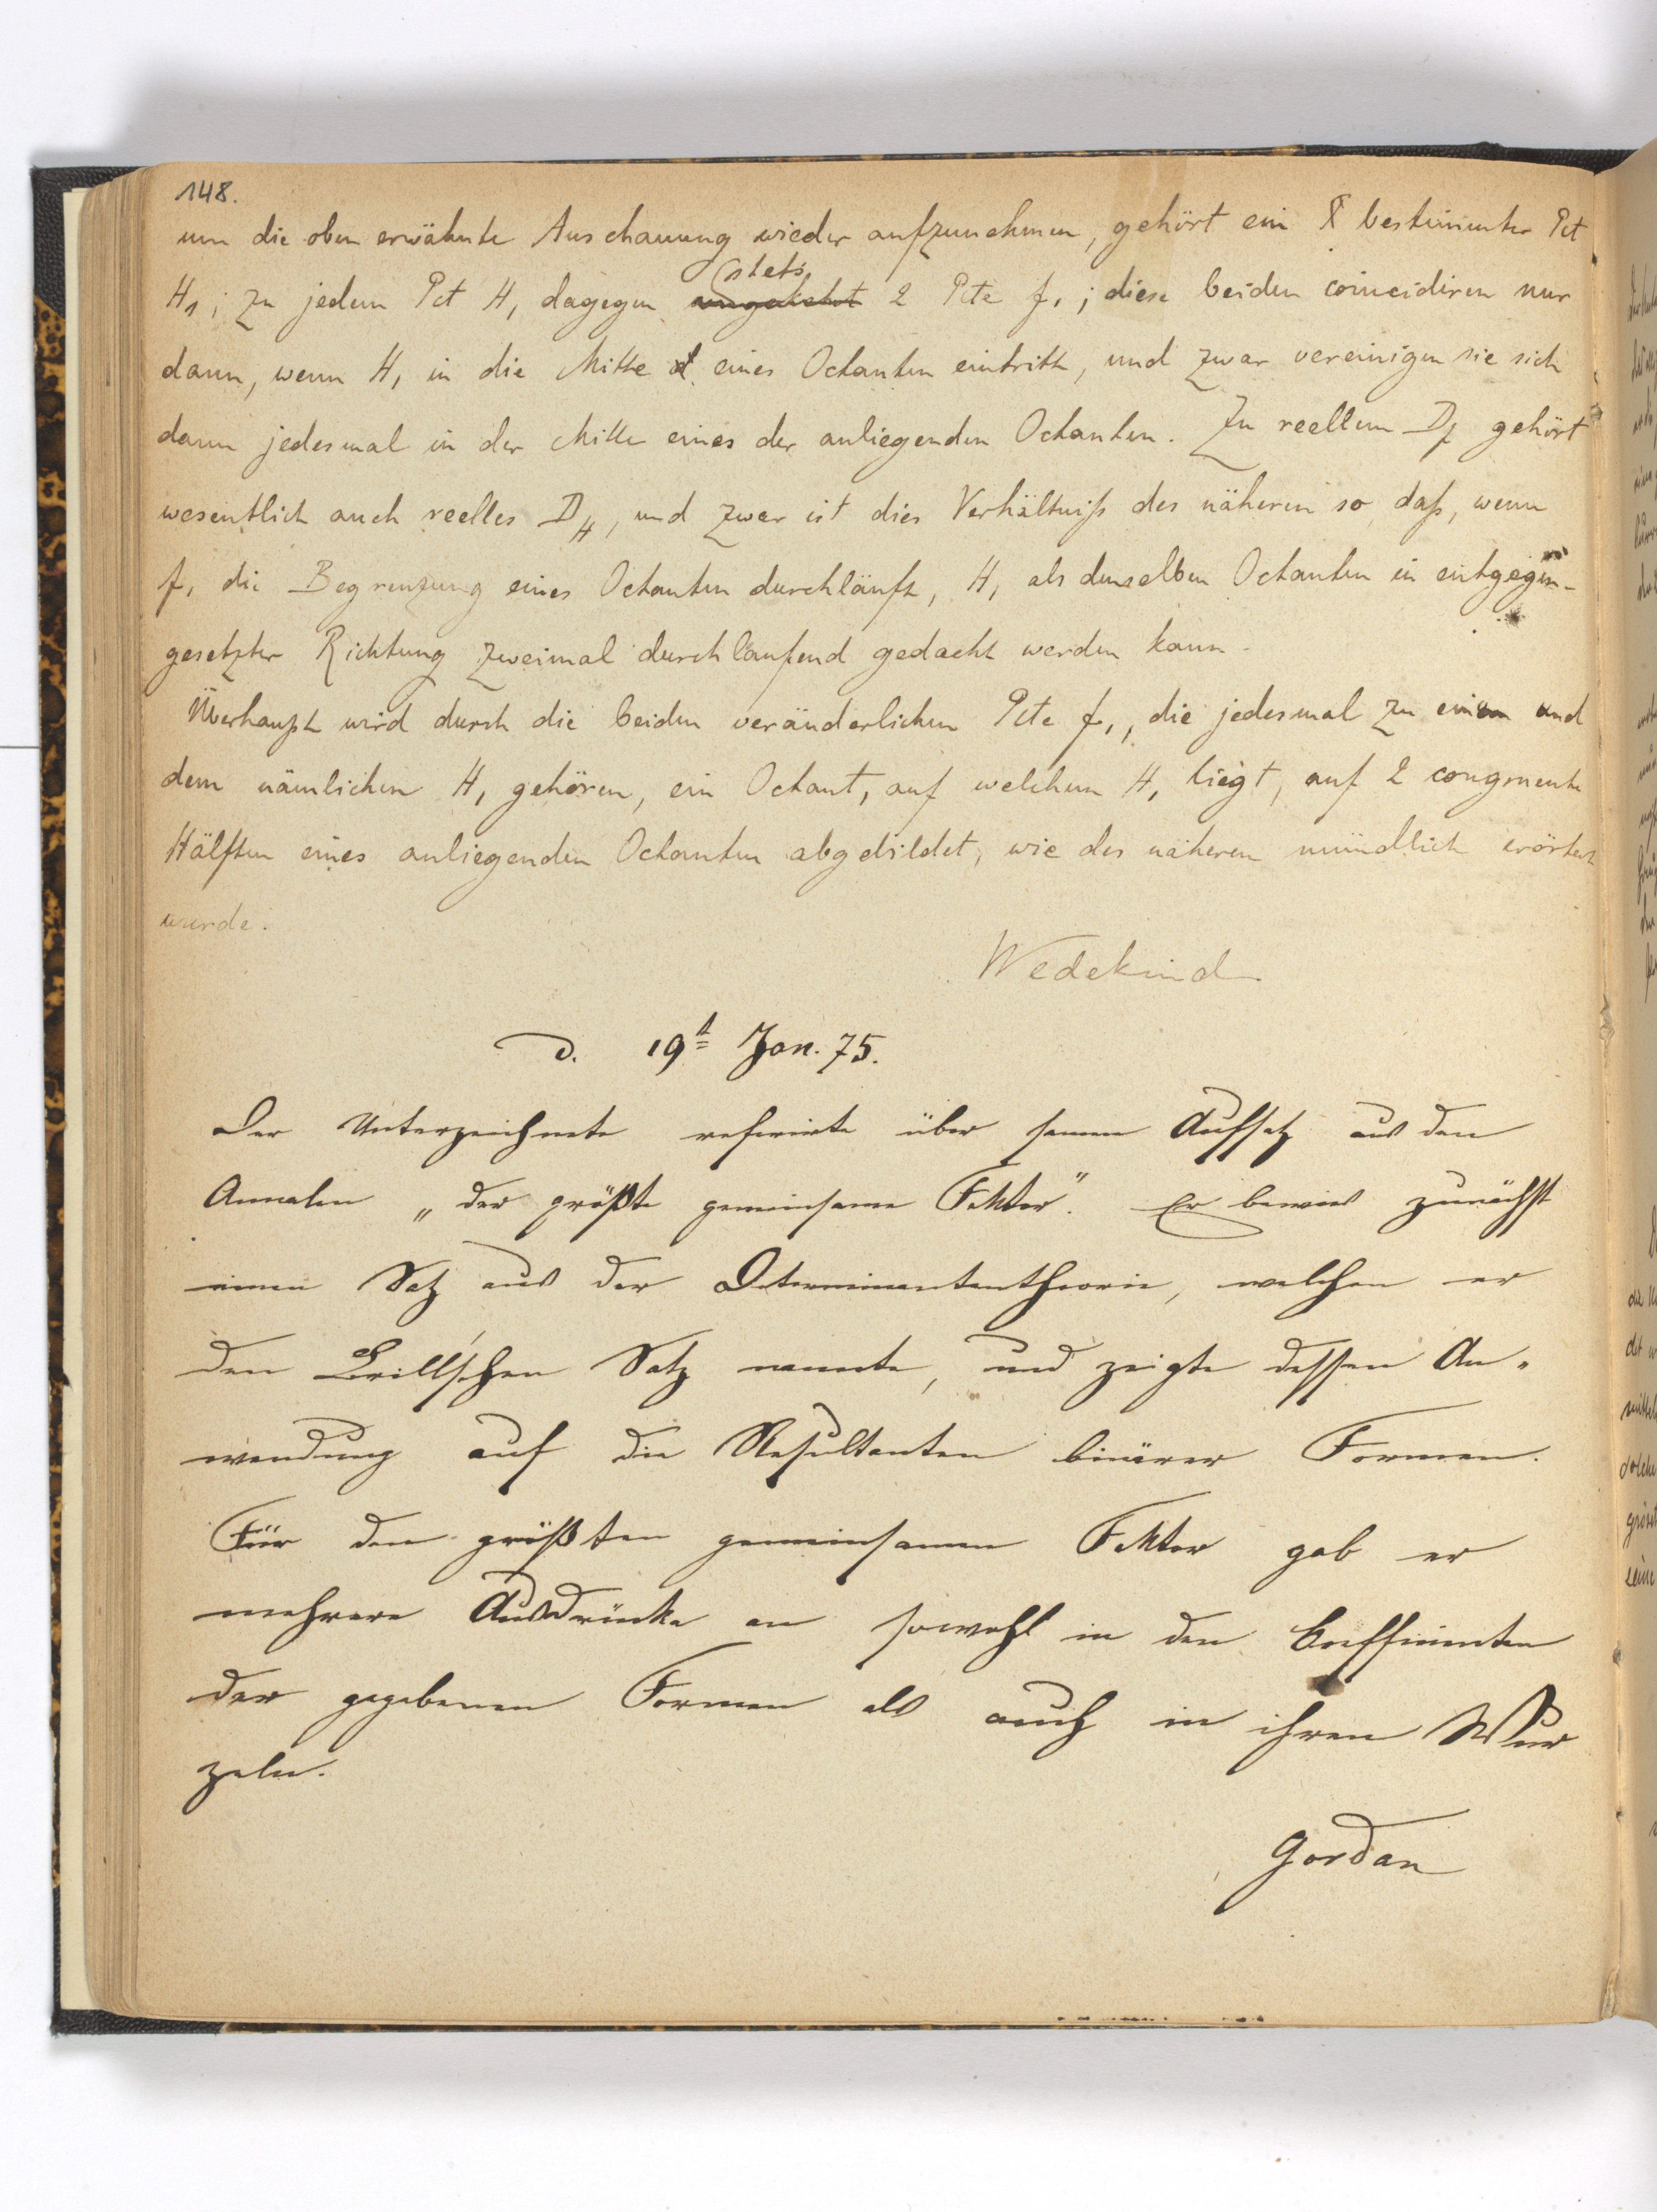 148.
um die oben erwähnte Anschauung wieder aufzunehmen, gehört ein bestimmter Pct
H₁; zu jedem Pct H₁ dagegen stets 2 Pcte f₁; diese beiden coincidiren nur
dann, wenn H₁ in die Mitte eines Octanten eintritt, und zwar vereinigen sie sich
dann jedesmal in der Mitte eines der anliegenden Octanten. Zu reellem D_f gehört
wesentlich auch reelles D_H, und zwar ist dies Verhältniß des näheren so, daß, wenn
f₁ die Begrenzung eines Octanten durchläuft, H₁ als denselben Octanten in entgegen-
gesetzter Richtung zweimal durchlaufend gedacht werden kann.
Überhaupt wird durch die beiden veränderlichen Pcte f₁, die jedesmal zu einem und
dem nämlichen H₁ gehören, ein Octant, auf welchem H₁ liegt, auf 2 congruente
Hälften eines anliegenden Octanten abgebildet, wie des näheren mündlich erörtert
wurde.
Wedekind
d. 19t Jan. 75.
Der Unterzeichnete referirte über seinen Aufsatz aus den
Annalen „der größte gemeinsame Faktor". Er bewies zunächst
einen Satz aus der Determinantentheorie, welchen er
den Brill'schen Satz nannte, und zeigte dessen An-
wendung auf die Resultanten binärer Formen.
Für den größten gemeinsamen Faktor gab er
mehrere Ausdrücke an sowohl in den Coefficienten
der gegebenen Formen als auch in ihren Wur
zeln.
Gordan